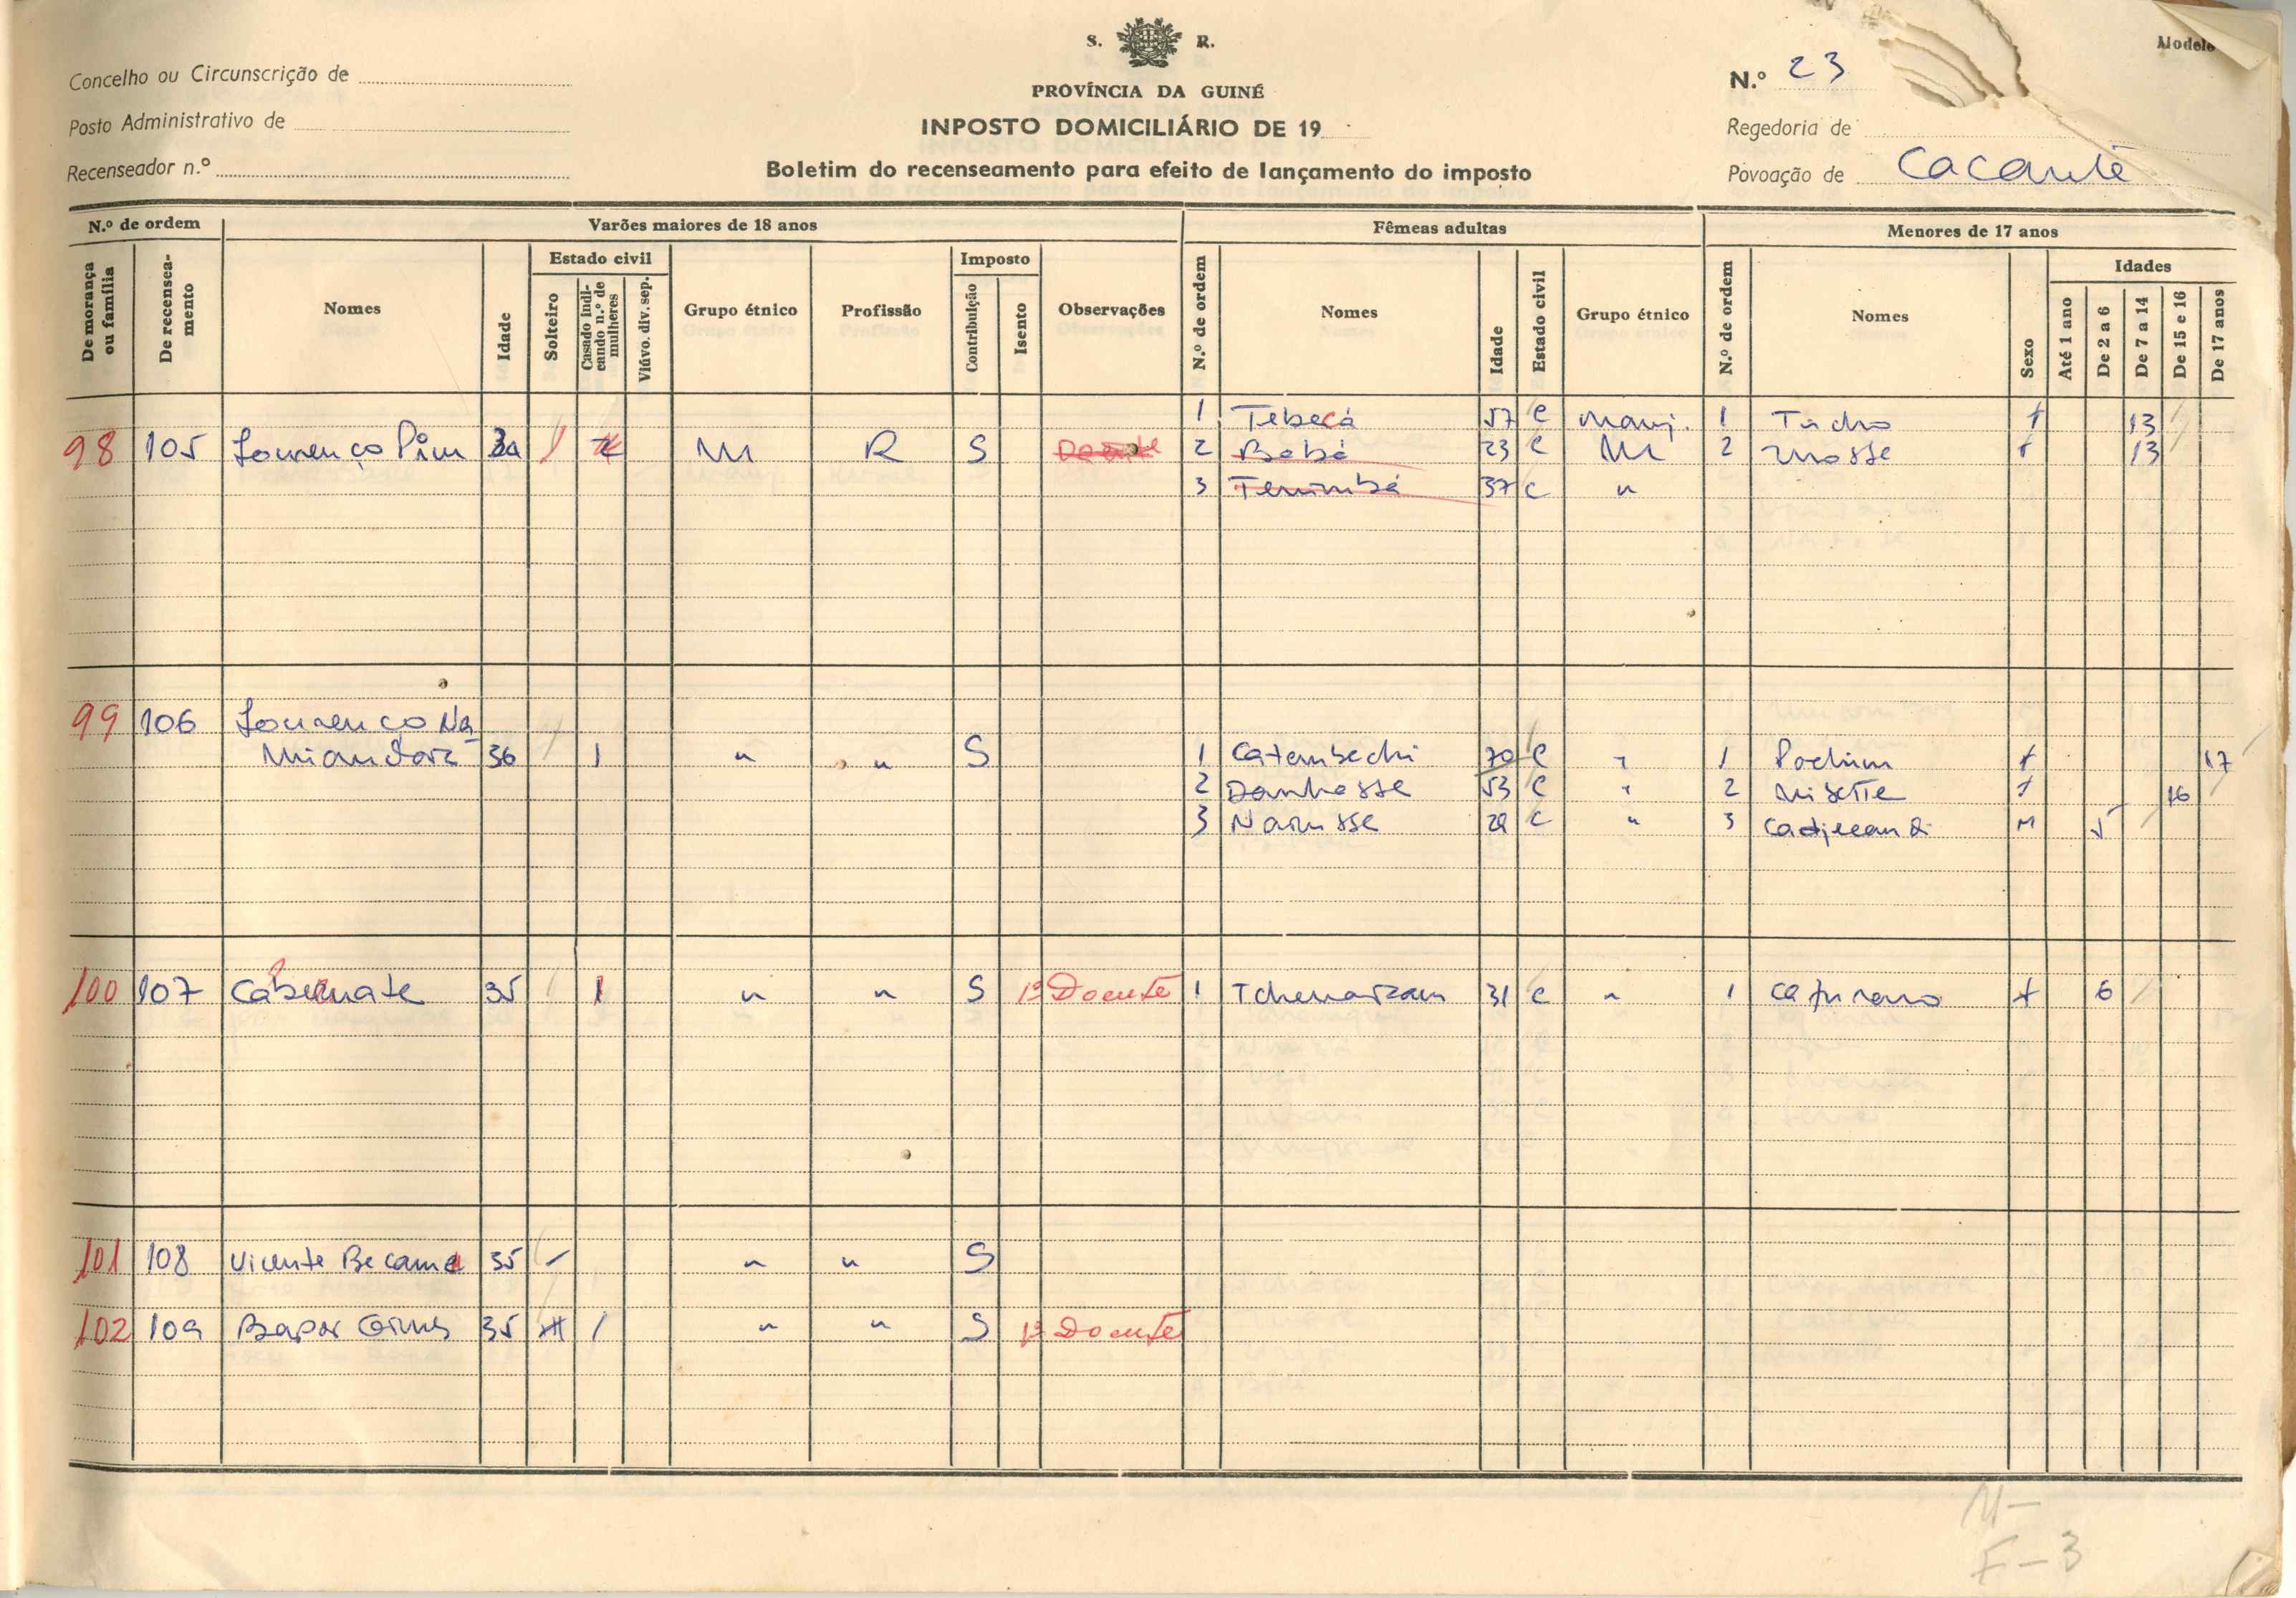 S. R.
Modelo
Concelho ou Circunscrição de
PROVÍNCIA DA GUINÉ
N.º 23
Posto Administrativo de
INPOSTO DOMICILIÁRIO DE 19
Regedoria de
Recenseador n.º
Boletim do recenseamento para efeito de lançamento do imposto
Povoação de Cacante
N.º de ordem Varões maiores de 18 anos Fêmeas adultas Menores de 17 anos
De morança ou família De recenseamento Nomes Idade Estado civil Solteiro Casado indicando n.º de mulheres Viúvo. div. sep. Grupo étnico Profissão Imposto Contribuição Isento Observações N.º de ordem Nomes Idade Estado civil Grupo étnico N.º de ordem Nomes Sexo Idades Até 1 ano De 2 a 6 De 7 a 14 De 15 e 16 De 17 anos
1 Tebecá 57 C Manj. 1 Tucho f 13
98 105 Lourenço Pim M R S Doente 2 Bebá 23 C M 2 Mosse f 13
3 37 C "
99 106 Lourenço Na
36 1 " " S 1 Catembechi 70 C " 1 Pochim f 17
2 Danhosse 53 C " 2 f 16
3 Namsse C " 3 M 5
100 107 35 1 " " S 1º Doente 1 31 C " 1 f 6
101 108 Vicente Becama 35 - " " S
102 109 Bapar Gomes 35 1 " " S 1º Doente
M-
F-3